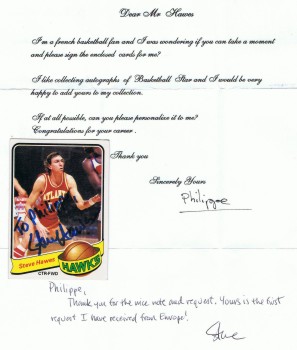 Dear Mr Hawes
I'm a french basketball fan and I was wondering if you can take a moment
and please sign the enclosed cards for me?
I like collecting autographs of Basketball Star and I would be very
happy to add yours to my collection.
If at all possible, can you please personalize it to me?
Congratulations for your career .
Thank you
Sincerely Yours
Philippe
ATLANTA
To Philippe
Steve Hawes
Steve Hawes
HAWKS
CTR-FWD
Philippe,
Thank you for the nice note and request. Yours is the first
request I have received from Europe!
Steve